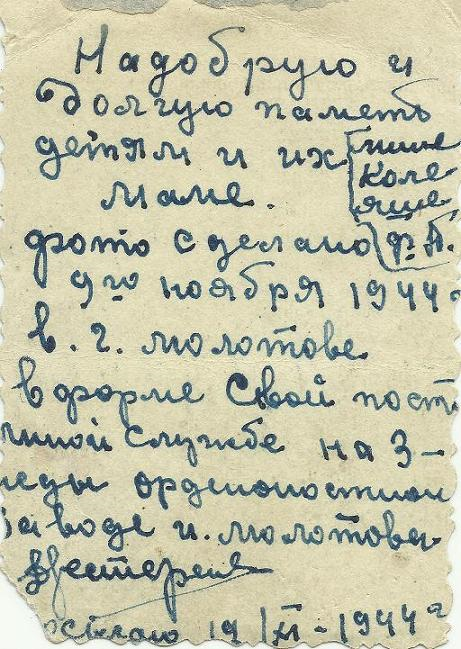 На добрую и
долгую паметь
детям и их
маме.
нине
Коле
яше
ф. П.
фото сделано
9го ноября 1944г
в. г. молотове
в форме Свой пост
нной Службе на 3-
жды орденоностном
заводе и. молотова
19/XI-1944г